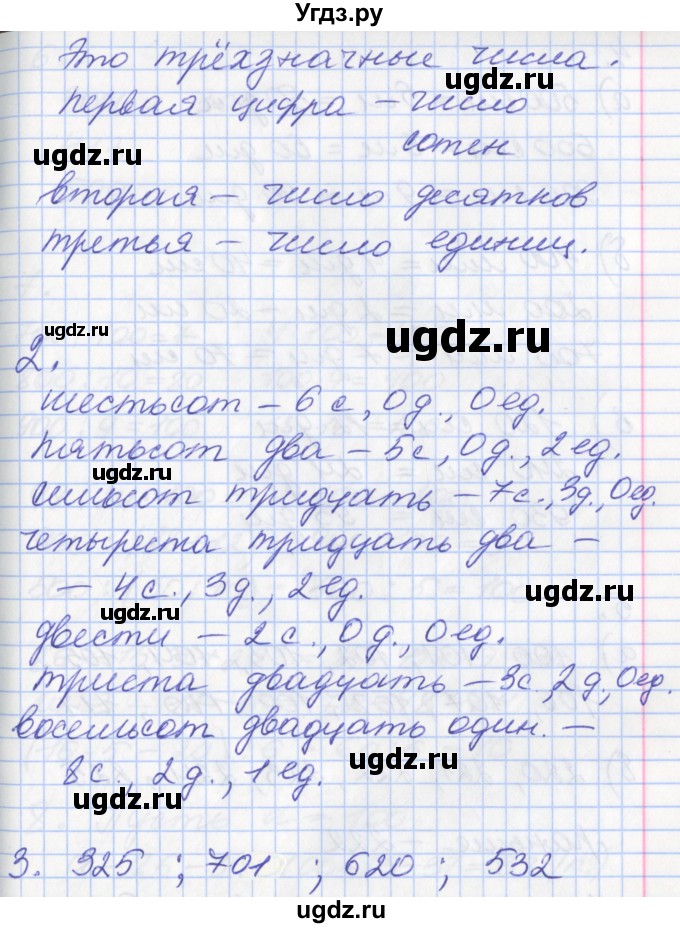 Угдз.ру
Это трёхзначные числа.
первая цифра – число
сотен
ugdz.ru
вторая – число десятков
третья – число единиц.
ugdz.ru
ugdz.ru
ugdz.ru
2.
шестьсот – 6 с, 0 д., 0 ед.
пятьсот два – 5с, 0 д., 2 ед.
ugdz.ru
семьсот тридцать – 7с., 3д., 0ед.
четыреста тридцать два –
– 4 с., 3 д., 2 ед.
ugdz.ru
ugdz.ru
двести – 2 с., 0 д., 0 ед.
триста двадцать – 3с, 2 д, 0ед.
восемьсот двадцать один. –
8 с., 2 д., 1 ед.
ugdz.ru
ugdz.ru
3. 325 ; 701 ; 620 ; 532
ugdz.ru